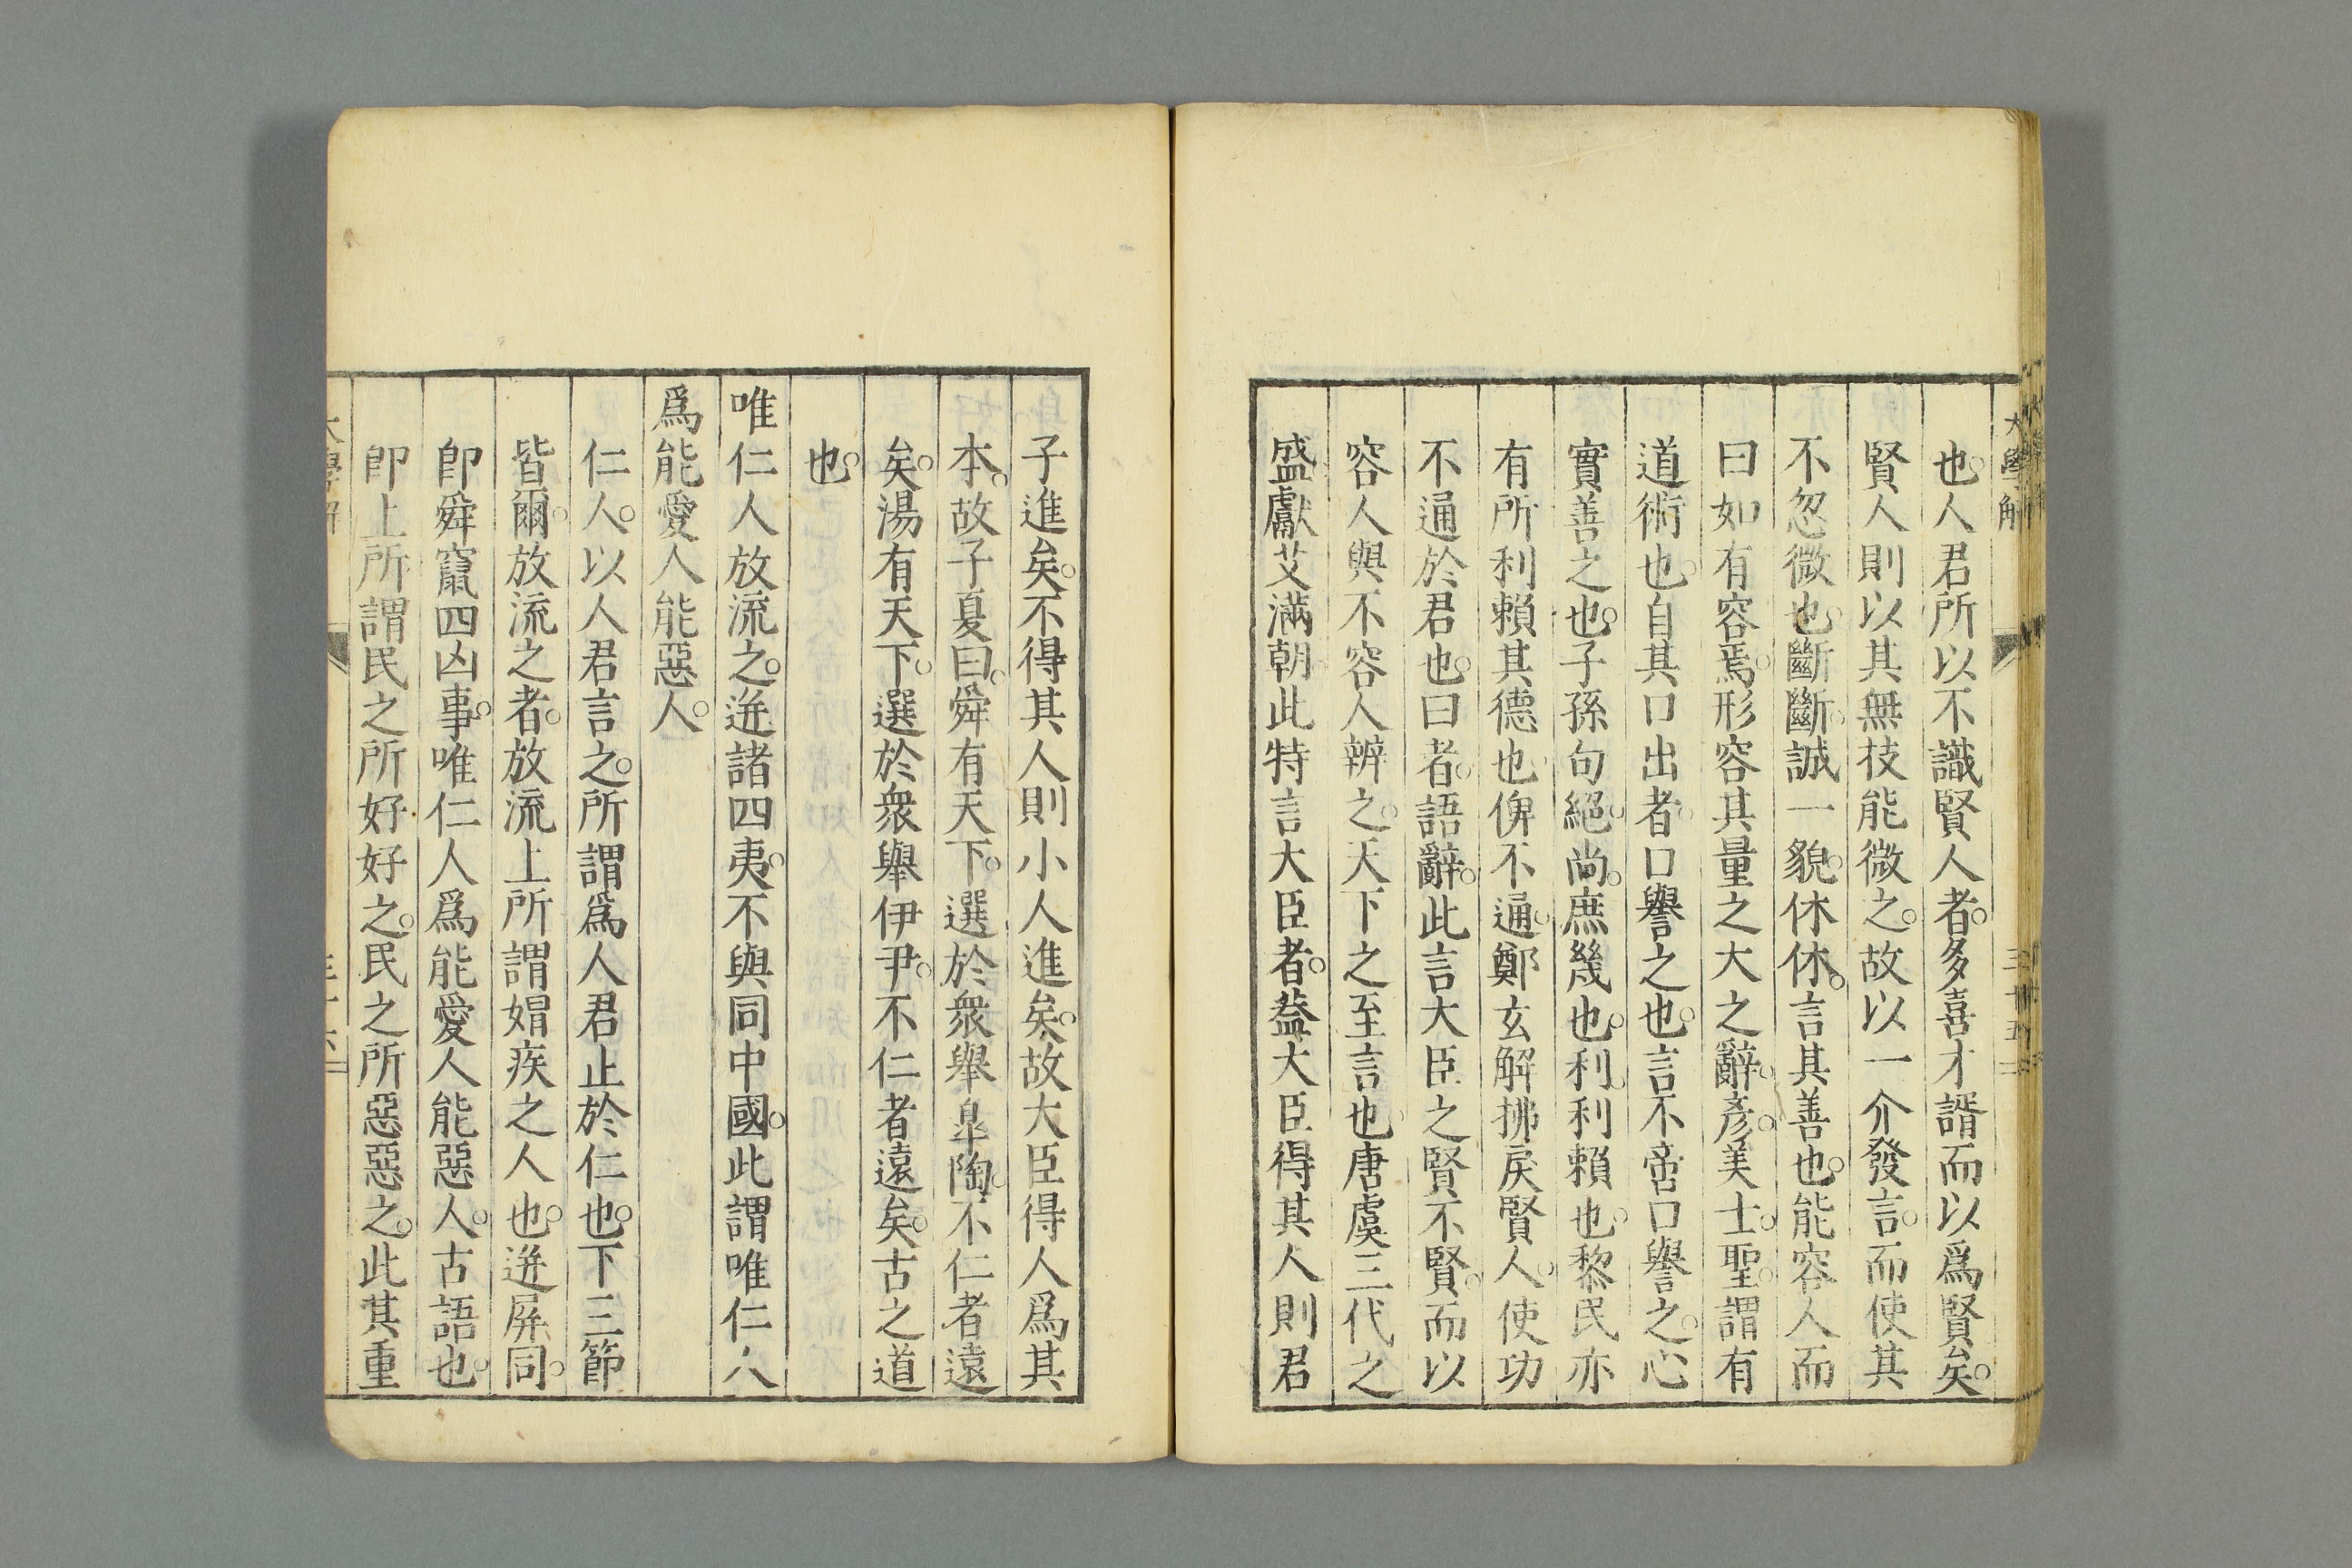 大學解
三十五
也。人君所以不識賢人者。多喜才諝而以爲賢矣。
賢人則以其無技能微之。故以一介發言。而使其
不忽微也。斷斷。誠一貌。休休。言其善也。能容人而
曰如有容焉。形容其量之大之辭。彥。美士。聖。謂有
道術也。自其口出者。口譽之也。言不啻口譽之。心
實善之也。子孫句絕。尚。庶幾也。利。利賴也。黎民亦
有所利賴其德也。俾不通。鄭玄解拂戾賢人。使功
不通於君也。曰者。語辭。此言大臣之賢不賢。而以
容人與不容人辨之。天下之至言也。唐虞三代之
盛獻艾滿朝此特言大臣者。葢大臣得其人則君
子進矣。不得其人則小人進矣。故大臣得人爲其
本。故子夏曰。舜有天下。選於衆舉皐陶。不仁者遠
矣。湯有天下。選於衆舉伊尹。不仁者遠矣。古之道
也。
唯仁人放流之。迸諸四夷。不與同中國。此謂唯仁人
爲能愛人能惡人。
仁人。人以人君言之。所謂爲人君止於仁也。下三節
皆爾。放流之者。放流上所謂媢疾之人也。迸屏同。
卽舜竄四凶事。唯仁人爲能愛人能惡人。古語也。
卽上所謂民之所好好之。民之所惡惡之。此其重
大學解